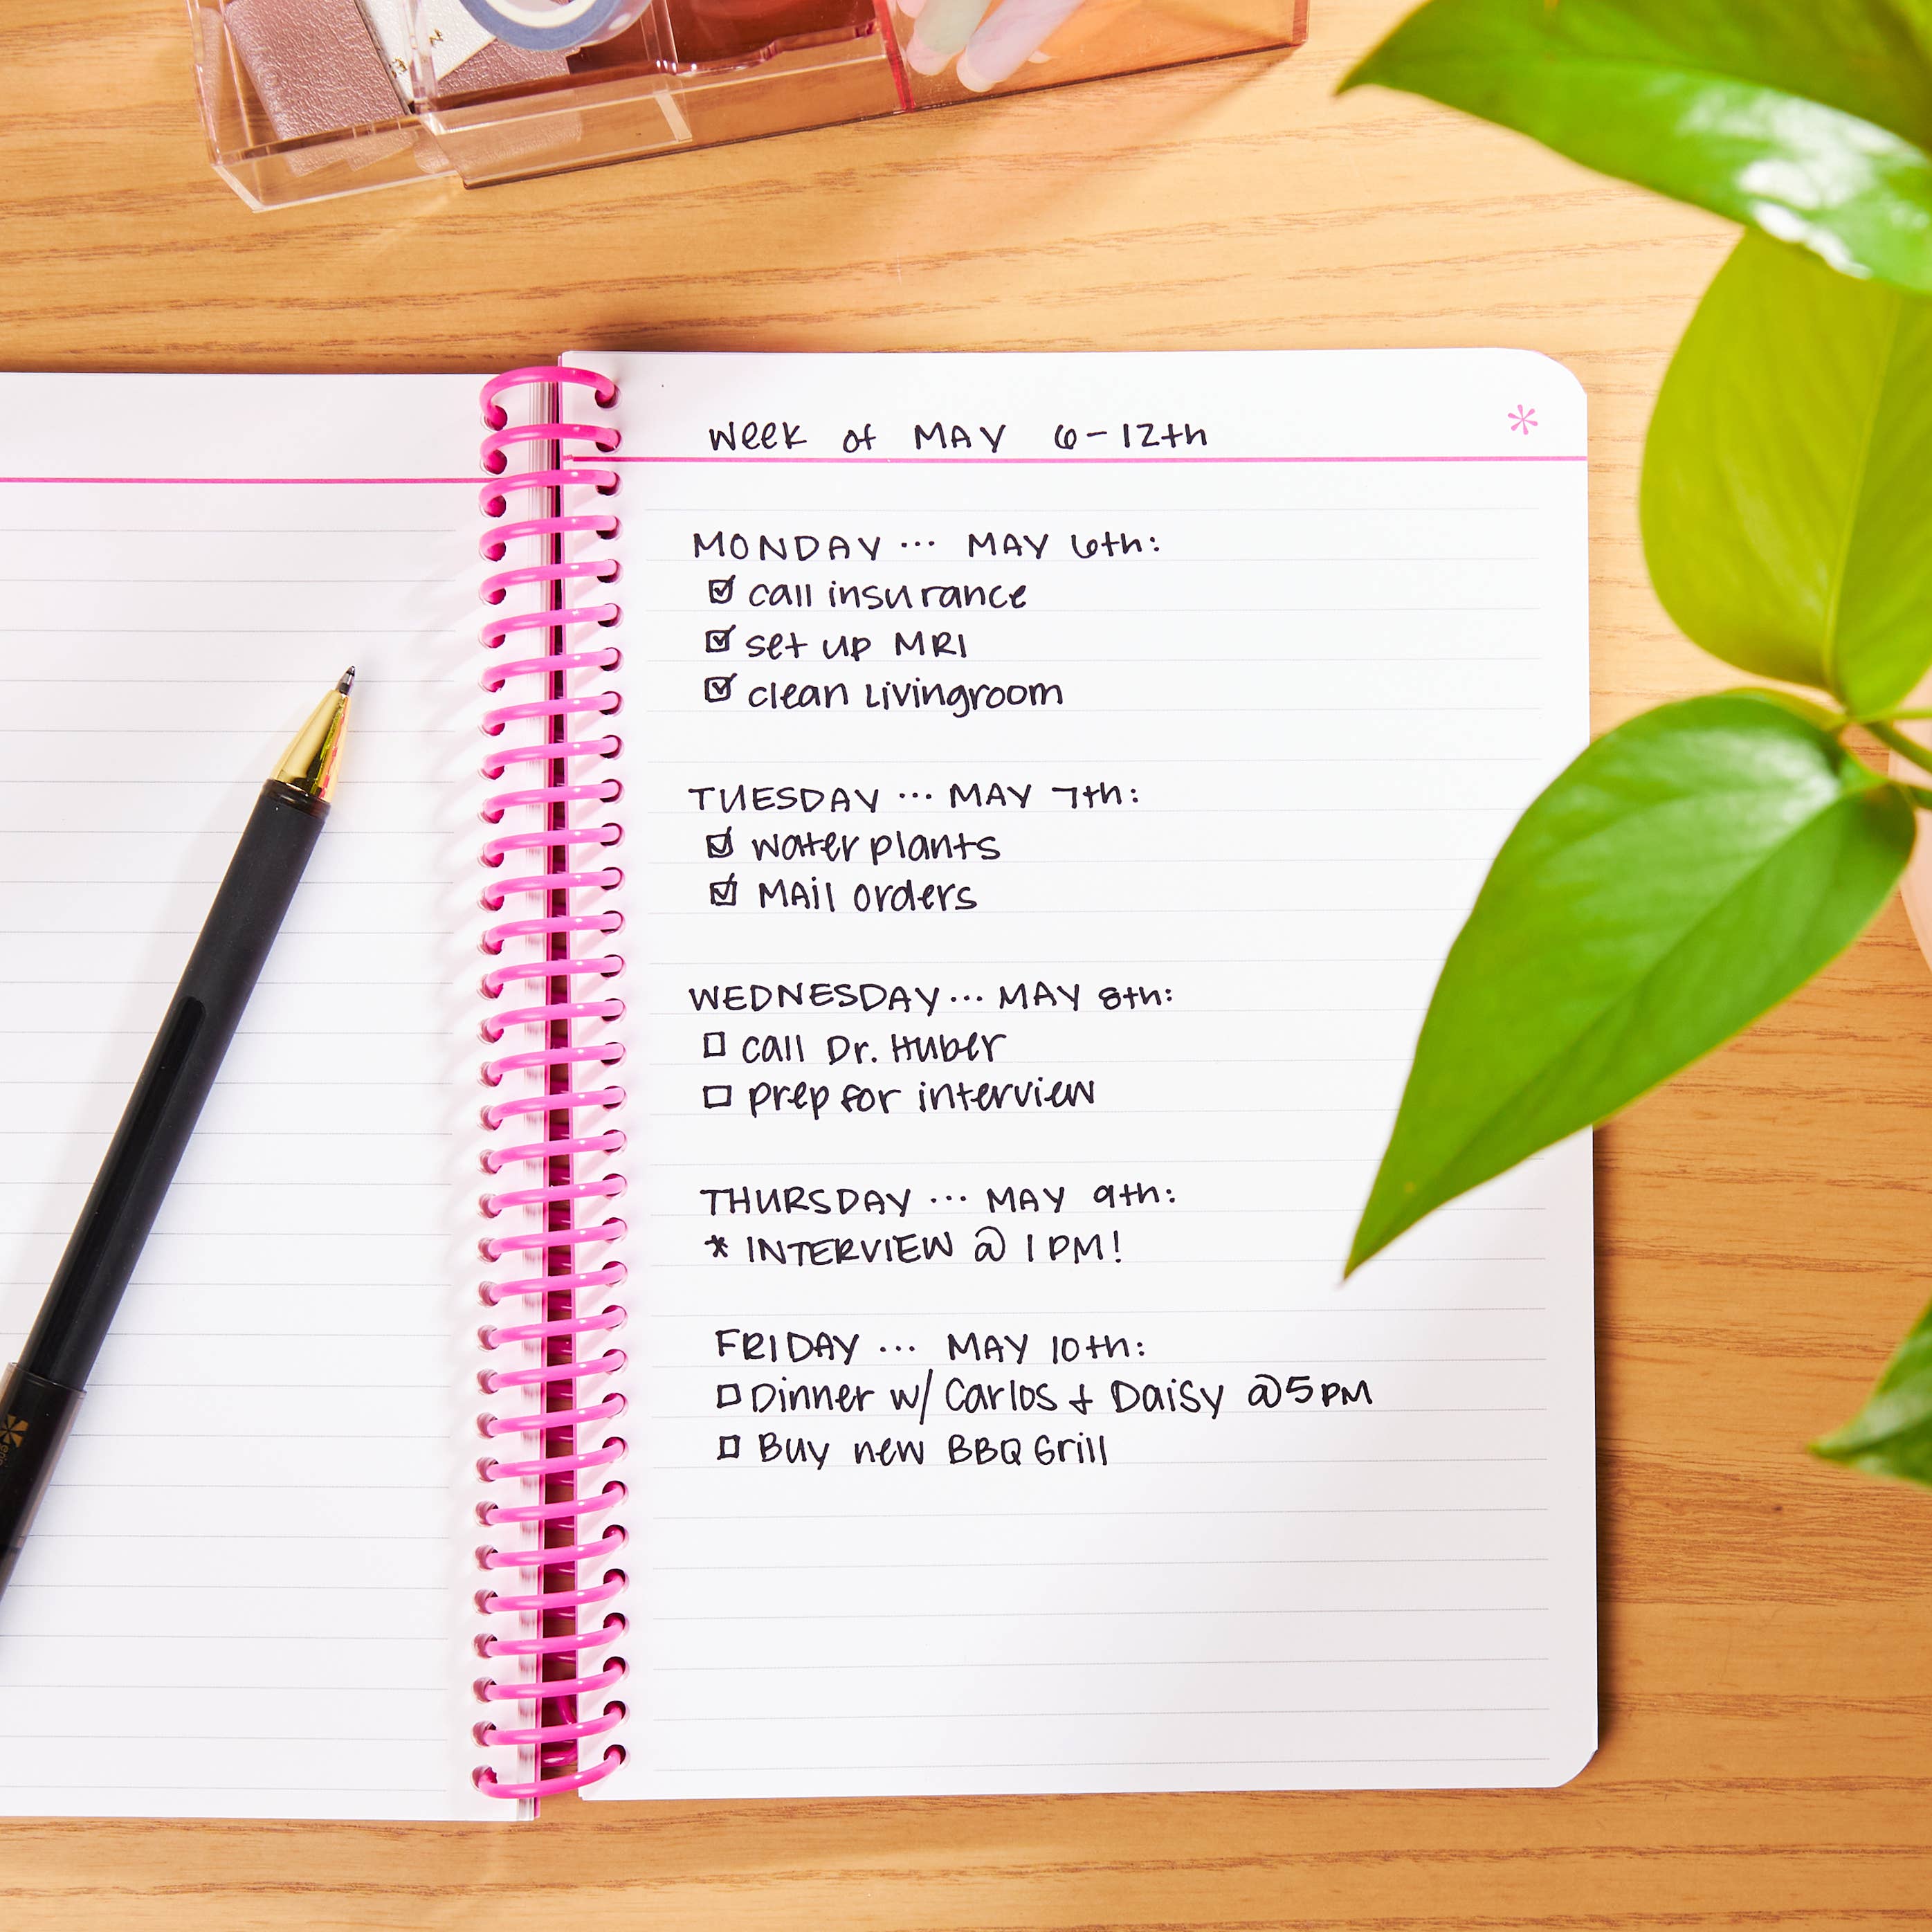 Week of MAY 6-12th
MONDAY ... MAY 6th:
☑ call insurance
☑ set up MRI
☑ clean Livingroom
TUESDAY ... MAY 7th:
☑ water plants
☑ MAil orders
WEDNESDAY ... MAY 8th:
☐ call Dr. Huber
☐ prep for interview
THURSDAY ... MAY 9th:
* INTERVIEW @ 1 PM!
FRIDAY ... MAY 10th:
☐ Dinner w/ Carlos + Daisy @ 5 PM
☐ Buy new BBQ Grill